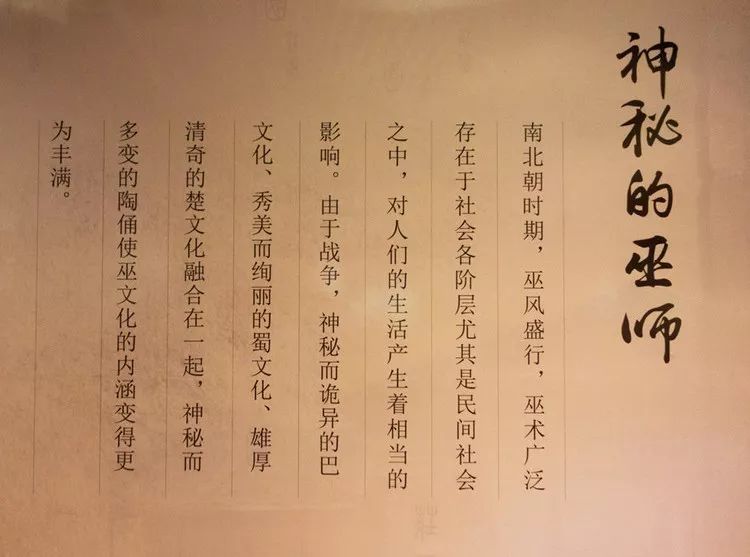 神秘的巫师
南北朝时期，巫风盛行，巫术广泛
存在于社会各阶层尤其是民间社会
之中，对人们的生活产生着相当的
影响。由于战争，神秘而诡异的巴
文化、秀美而绚丽的蜀文化、雄厚
清奇的楚文化融合在一起，神秘而
多变的陶俑使巫文化的内涵变得更
为丰满。